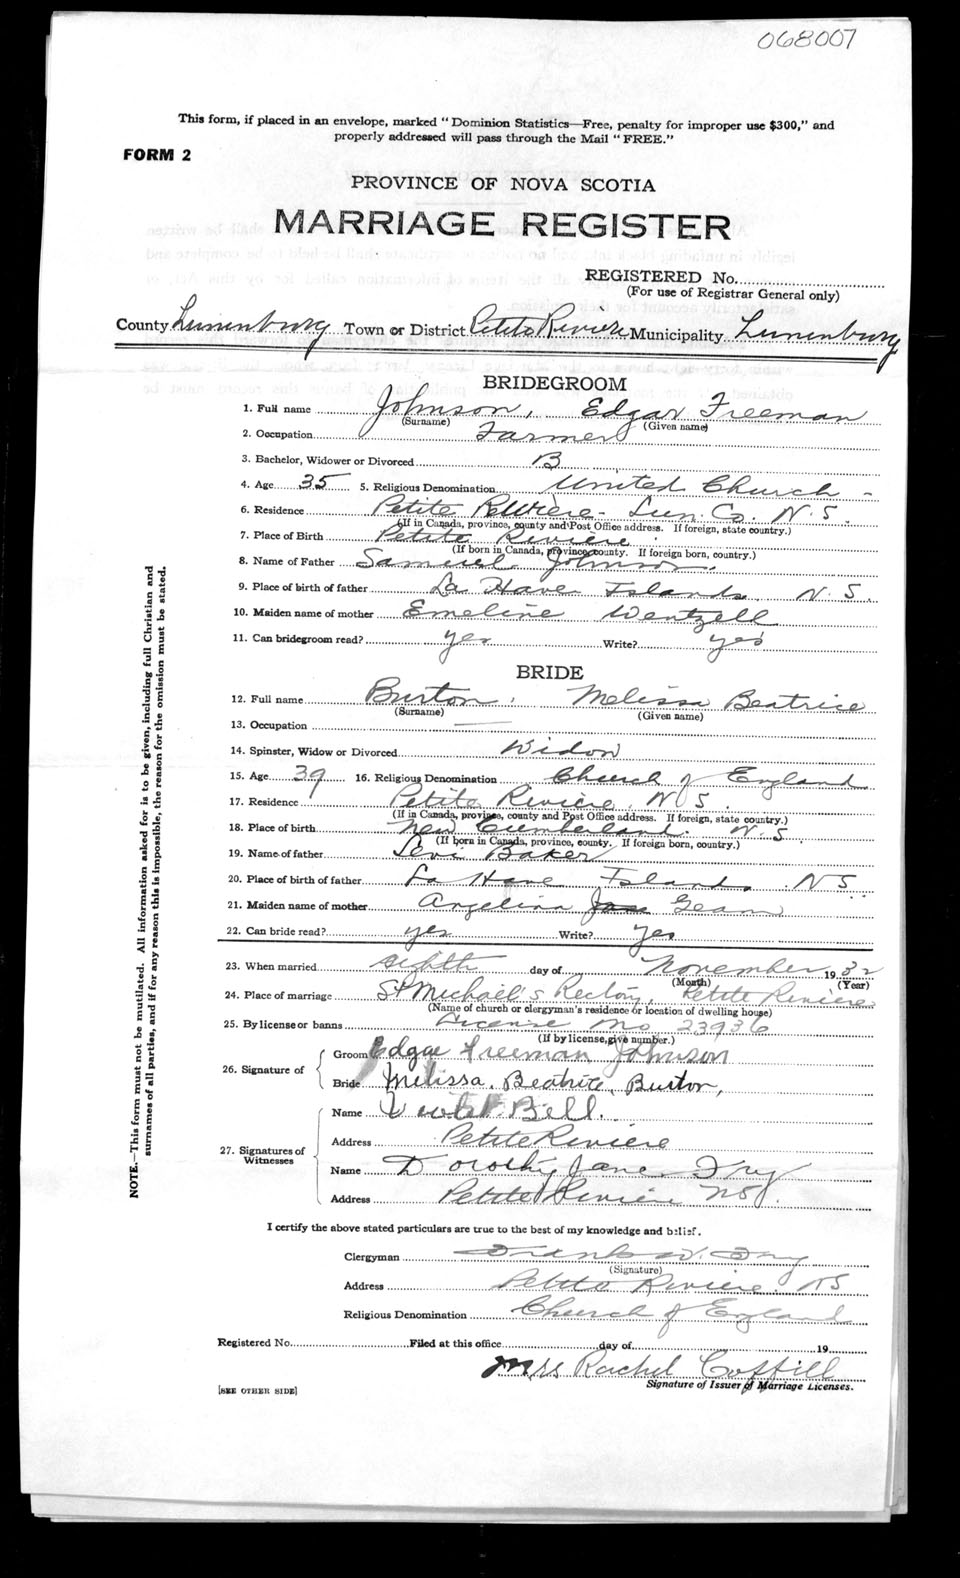 068007
This form, if placed in an envelope, marked "Dominion Statistics—Free, penalty for improper use $300," and
properly addressed will pass through the Mail "FREE."
FORM 2
PROVINCE OF NOVA SCOTIA
MARRIAGE REGISTER
REGISTERED No.
(For use of Registrar General only)
County Lunenburg Town or District Petite Riviere Municipality Lunenburg
BRIDEGROOM
1. Full name Johnson, Edgar Freeman
(Surname) (Given name)
2. Occupation Farmer
3. Bachelor, Widower or Divorced B
4. Age 35 5. Religious Denomination United Church -
6. Residence Petite Riviere - Lun. Co. N. S.
(If in Canada, province, county and Post Office address. If foreign, state country.)
7. Place of Birth Petite Riviere
(If born in Canada, province, county. If foreign born, country.)
8. Name of Father Samuel Johnson.
9. Place of birth of father La Have Islands N. S.
10. Maiden name of mother Emeline Wentzell
11. Can bridegroom read? yes Write? yes
BRIDE
12. Full name Burton, Melissa Beatrice
(Surname) (Given name)
13. Occupation —
14. Spinster, Widow or Divorced Widow
15. Age 39 16. Religious Denomination Church of England
17. Residence Petite Riviere, N S.
(If in Canada, province, county and Post Office address. If foreign, state country.)
18. Place of birth New Cumberland. N. S.
(If born in Canada, province, county. If foreign born, country.)
19. Name of father Levi Baker
20. Place of birth of father La Have Islands N S.
21. Maiden name of mother Angelina
22. Can bride read? yes Write? yes
23. When married Eighth day of November 1932
(Month) (Year)
24. Place of marriage St Michael's Rectory, Petite Riviere
(Name of church or clergyman's residence or location of dwelling house)
25. By license or banns License No 23936
(If by license, give number.)
26. Signature of
Groom Edgar Freeman Johnson
Bride Melissa. Beatrice, Burton,
27. Signatures of Witnesses
Name Violet Bell.
Address Petite Riviere
Name Dorothy Jane Fry
Address Petite Riviere NS.
I certify the above stated particulars are true to the best of my knowledge and belief.
Clergyman Frank W. Fry
(Signature)
Address Petite Riviere. NS
Religious Denomination Church of England
Registered No. Filed at this office day of 19
Mrs Rachel Coffill
Signature of Issuer of Marriage Licenses.
[SEE OTHER SIDE]
NOTE.—This form must not be mutilated. All information asked for is to be given, including full Christian and
surnames of all parties, and if for any reason this is impossible, the reason for the omission must be stated.